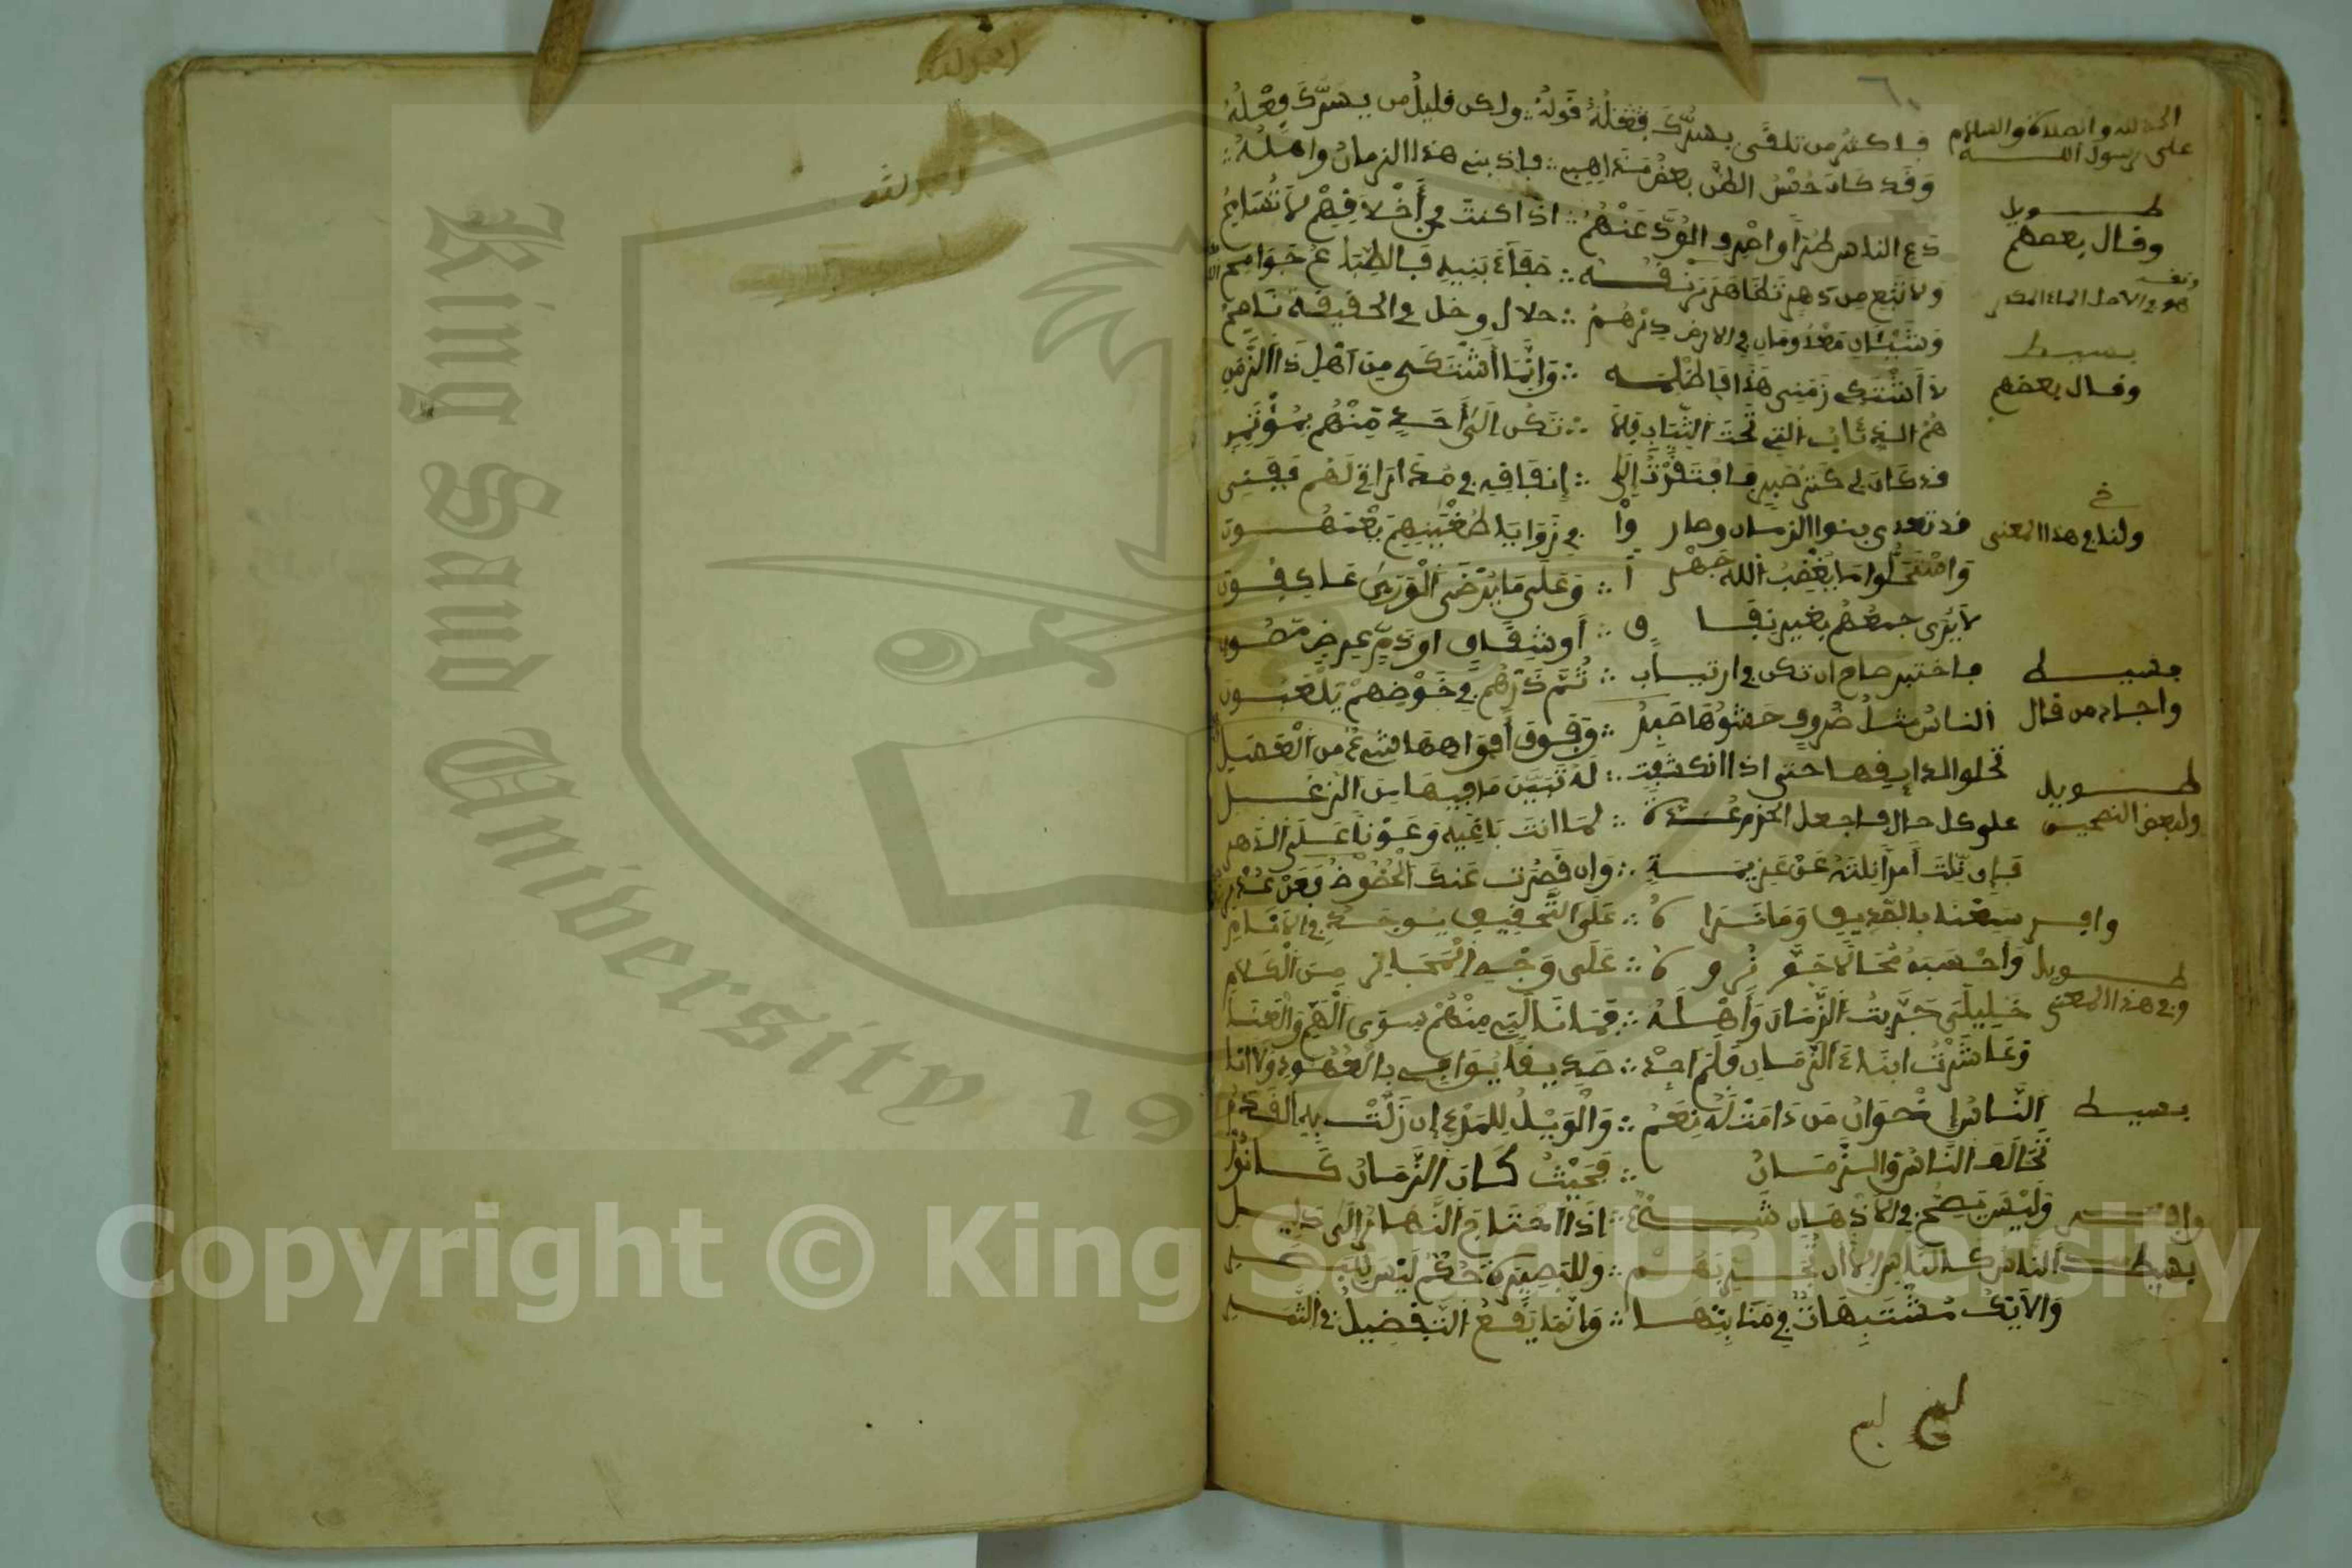 ٦٠
الحمد لله والصلاة والسلام
على رسول الله
فاكثر من تلقى يسرك قوله ∴ ولكن قليل من يسرك فعله
وقد كان حسن الظن بعض مذاهبي ∴ فادبني هذا الزمان واهله
طويل
وقال بعضهم
دع الناس طرا واصرف الود عنهم ∴ اذا كنت في أخلاقهم لا تسامح
ولا تبغ من دهر تظاهر رنقه ∴ صفاء بنيه فالطباع جوامح
وشيئان معدومان في الارض درهم ∴ حلال وخل في الحقيقة ناصح
بسيط
وقال بعضهم
لا أشتكي زمني هذا فاظلمه ∴ وإنما أشتكي من أهل ذا الزمن
هم الذئاب التي تحت الثياب فلا ∴ تكن إلى أحد منهم بمؤتمن
قد كان لي كنز صبر فافتقرت إلى ∴ إنفاقه في مداراتي لهم ففني
خ
ولنا في هذا المعنى
قد تعدى بنوا الزمان وصاروا في زوايا طغينهم يعمهون
واستحلوا ما يغضب الله جهرا ∴ وعلى ما يرضي الورى عاكفون
لا يرى جمعهم بغير نفاق ∴ أو شقاق او ذم عرض مصون
فاختبر صاح ان تكن في ارتياب ∴ ثم ذرهم في خوضهم يلعبون
بسيط
واجاد من قال
الناس مثل ظروف حشوها صبر ∴ وفوق أفواهها شيء من العسل
تحلو لذائقها حتى اذا انكشفت ∴ له تبين ما فيها من الزغل
طويل
ولبعض
على كل حال فاجعل الحزم عدة ∴ لما انت باغيه وعونا على الدهر
فإن نلت أمرا نلته عن عزيمة ∴ وان قصرت عنك الحظوظ فعن عذر
وافر
سمعنا بالصديق وما نراه ∴ على التحقيق يوجد في الانام
وأحسبه محالا جوزوه ∴ على وجه المجاز من الكلام
طويل
وفي هذا المعنى
خليلي جربت الزمان وأهله ∴ فما نالني منهم سوى الهم والعنا
وعاشرت ابناء الزمان فلم اجد ∴ صديقا يوافي بالعهود ولا انا
بسيط
الناس إخوان من دامت له نعم ∴ والويل للمرء إن زلت به القدم
تحالف الناس والزمان ∴ فحيث كان الزمان كانوا
وافر
وليس يصح في الأذهان شيء ∴ اذا احتاج النهار إلى دليل
بسيط
الناس كالناس إلا أن تجربهم ∴ وللبصيرة حكم ليس للبصر
والأيك مشتبهات في منابتها ∴ وإنما يقع التفضيل في الثمر
الحمد لله
الحمد لله
King Saud University 19
Copyright © King Saud University